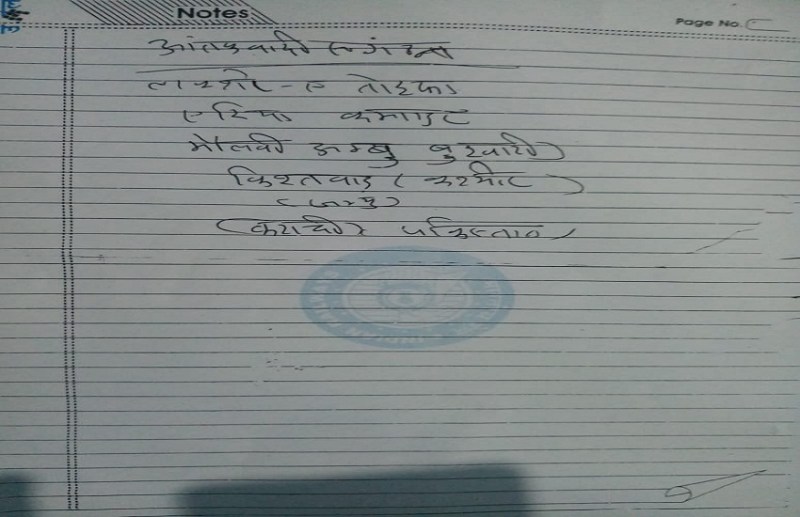 Notes
Page No.
आंतकवादी संगंठन
लश्कर-ए तोइबा
एरिया कमाण्डर
मौलवी अब्बु बुखारी
किश्तवाड़ (कश्मीर)
(जम्मु)
(कराची) पाकिस्तान